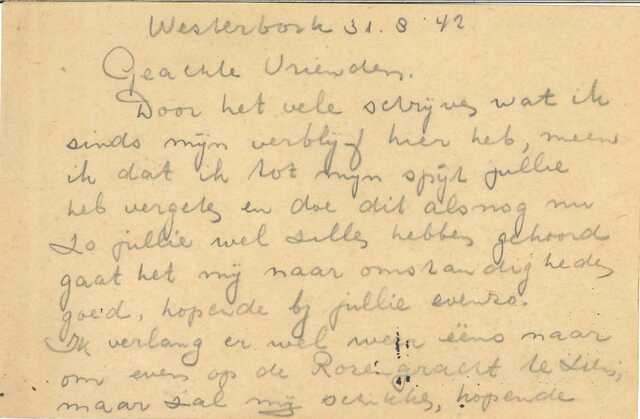 Westerbork 31.8'42
Geachte Vrienden.
Door het vele schrijven wat ik
sinds mijn verblijf hier heb, meen
ik dat ik tot mijn spijt jullie
heb vergeten en doe dit alsnog nu
Zo jullie wel zullen hebben gehoord
gaat het mij naar omstandigheden
goed, hopende bij jullie evenzo.
Ik verlang er wel weer ééns naar
om even op de Rozengracht te zitten,
maar zal mij schikken, hopende